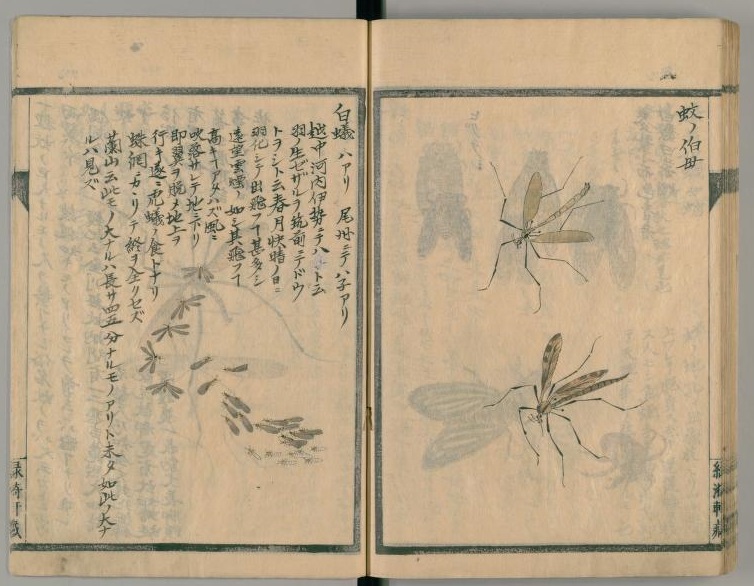 蚊ノ伯母
白蟻 ハアリ 尾州ニテハ子アリ
越中河内伊勢ニテハ ト云
羽ノ生ゼザルヲ筑前ニテドウ
トヲシト云春月快晴ノ日ニ
羽化シテ出飛フ丁甚多シ
遠望雲烟ノ如シ其飛フ丁
高キ アタハズ風ニ
吹落サレテ地ニ下リ
即翼ヲ脱メ地上ヲ
行キ遂ニ 蟻ノ食トナリ
蛛網ニカヽリテ終ヲ全クセズ
蘭山云此モノ大ナルハ長サ四五分ナルモノアリト未タ如此ノ大ナ
ルハ見ズ